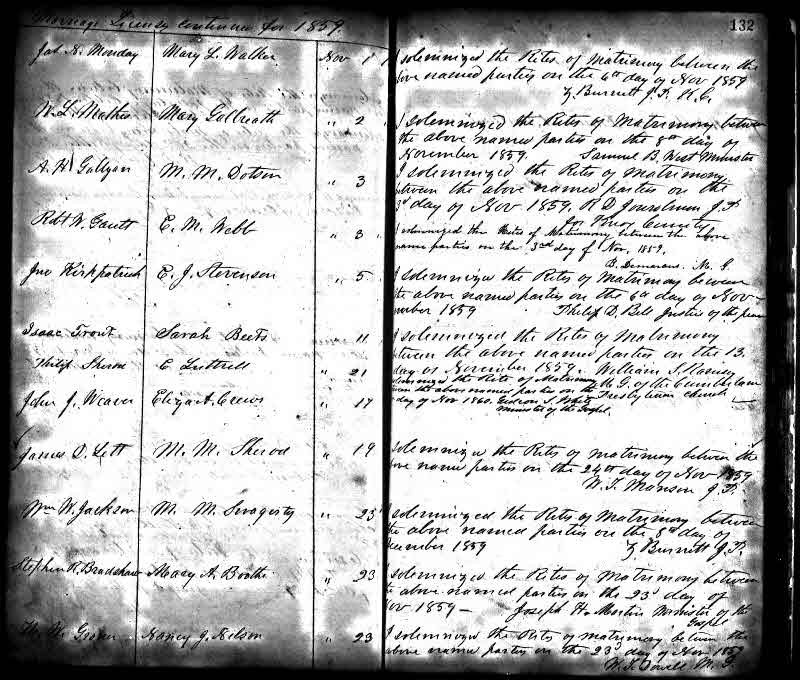 Marriage License continued for 1859.
132
Jas. N. Monday Mary L. Walker Nov 1 I solemnized the Rites of Matrimony between the
above named parties on the 6th day of Nov 1859
Z Burnett J.P. K.C.
W. L. Mathes Mary Galbreath " 2 I solemnized the Rites of Matrimony between
the above named parties on the 8th day of
November 1859. Samuel B. West Minister
A. H. Gallyan M. M. Dotson " 3 I solemnized the Rites of Matrimony
between the above named parties on the
3d day of Nov 1859. R D J.P.
for Knox County
Robt W. Gault E. M. Webb " 3 I solemnized the Rites of Matrimony between the above
name parties on the 3rd day of Nov. 1859.
B. M. G.
Jno Kirkpatrick E. J. Stevenson " 5 I solemnized the Rites of Matrimony between
the above named parties on the 6th day of Nov-
ember 1859 Philip D. Bell Justice of the peace
Isaac Trout Sarah Beets " 11 I solemnized the Rites of Matrimony
between the above named parties on the 13
day of November 1859. William S.
M. G. of the Cumberland
Presbyterian church
Philip Sherod E Luttrell " 21
John J. Weaver Eliza A. Crews " 17 solemnized the Rites of Matrimony
between the above named parties on
day of Nov 1860. Gideon S. White
Minister of the Gospel.
James D. Lett M. M. Sherod " 19 solemnized the Rites of matrimony between the
above name parties on the 24th day of Nov 1859
W. T. Monson J.P.
Wm W. Jackson M. M. Swagerty " 23 I solemnized the Rites of Matrimony between
the above named parties on the 8d day of
December 1859 Z Burnett J.P.
Stephen R. Bradshaw Mary A. Boothe " 23 I solemnized the Rites of Matrimony between
the above named parties on the 23d day of
Nov 1859 — Joseph H. Martin Minister of the
Gospel
Nancy J. Nelson " 23 I solemnized the Rites of matrimony between the
above name parties on the 23d day of Nov. 1859
W. T. Dowell M. G.